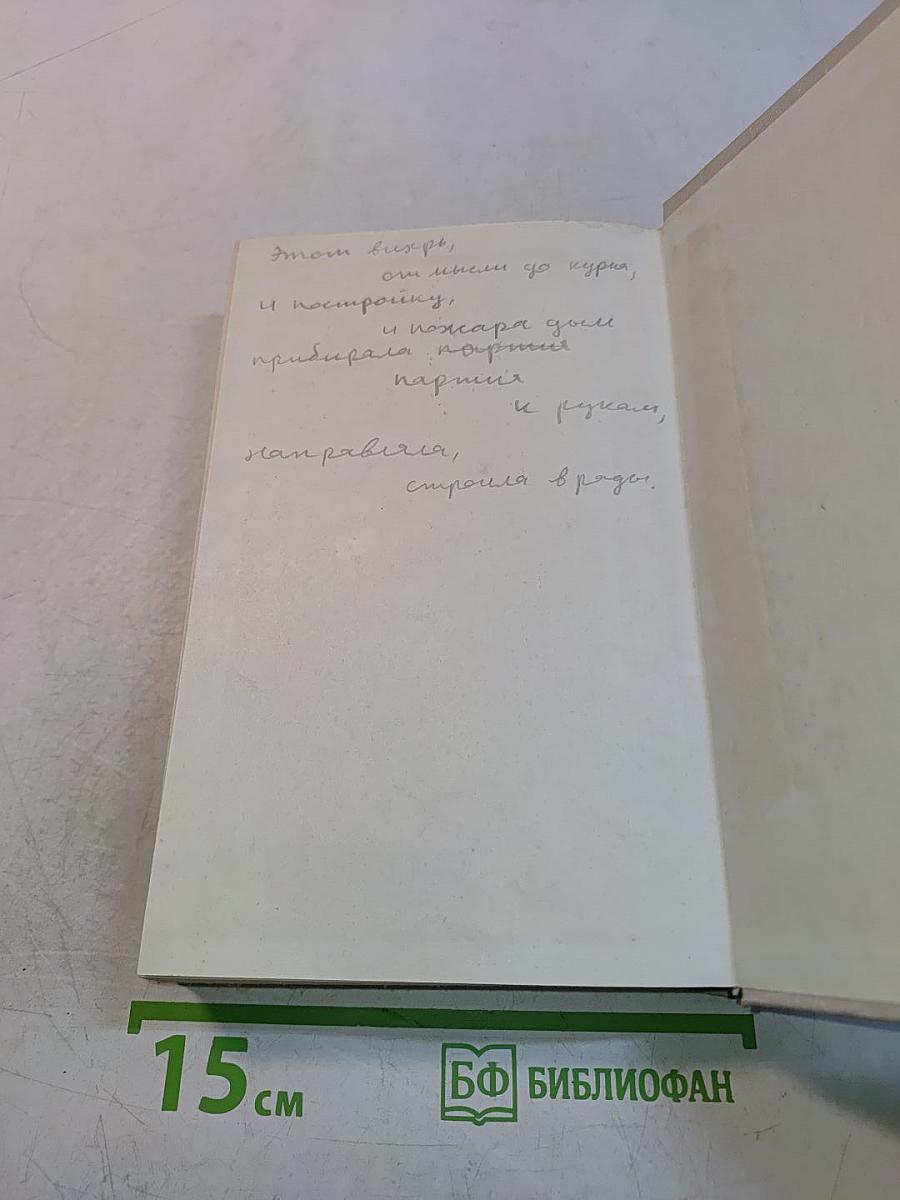 Этот вихрь,
от мысли до курка,
и постройку,
и пожара дым
прибирала партия
партия
к рукам,
направляла,
строила в ряды.
15 см
БФ БИБЛИОФАН